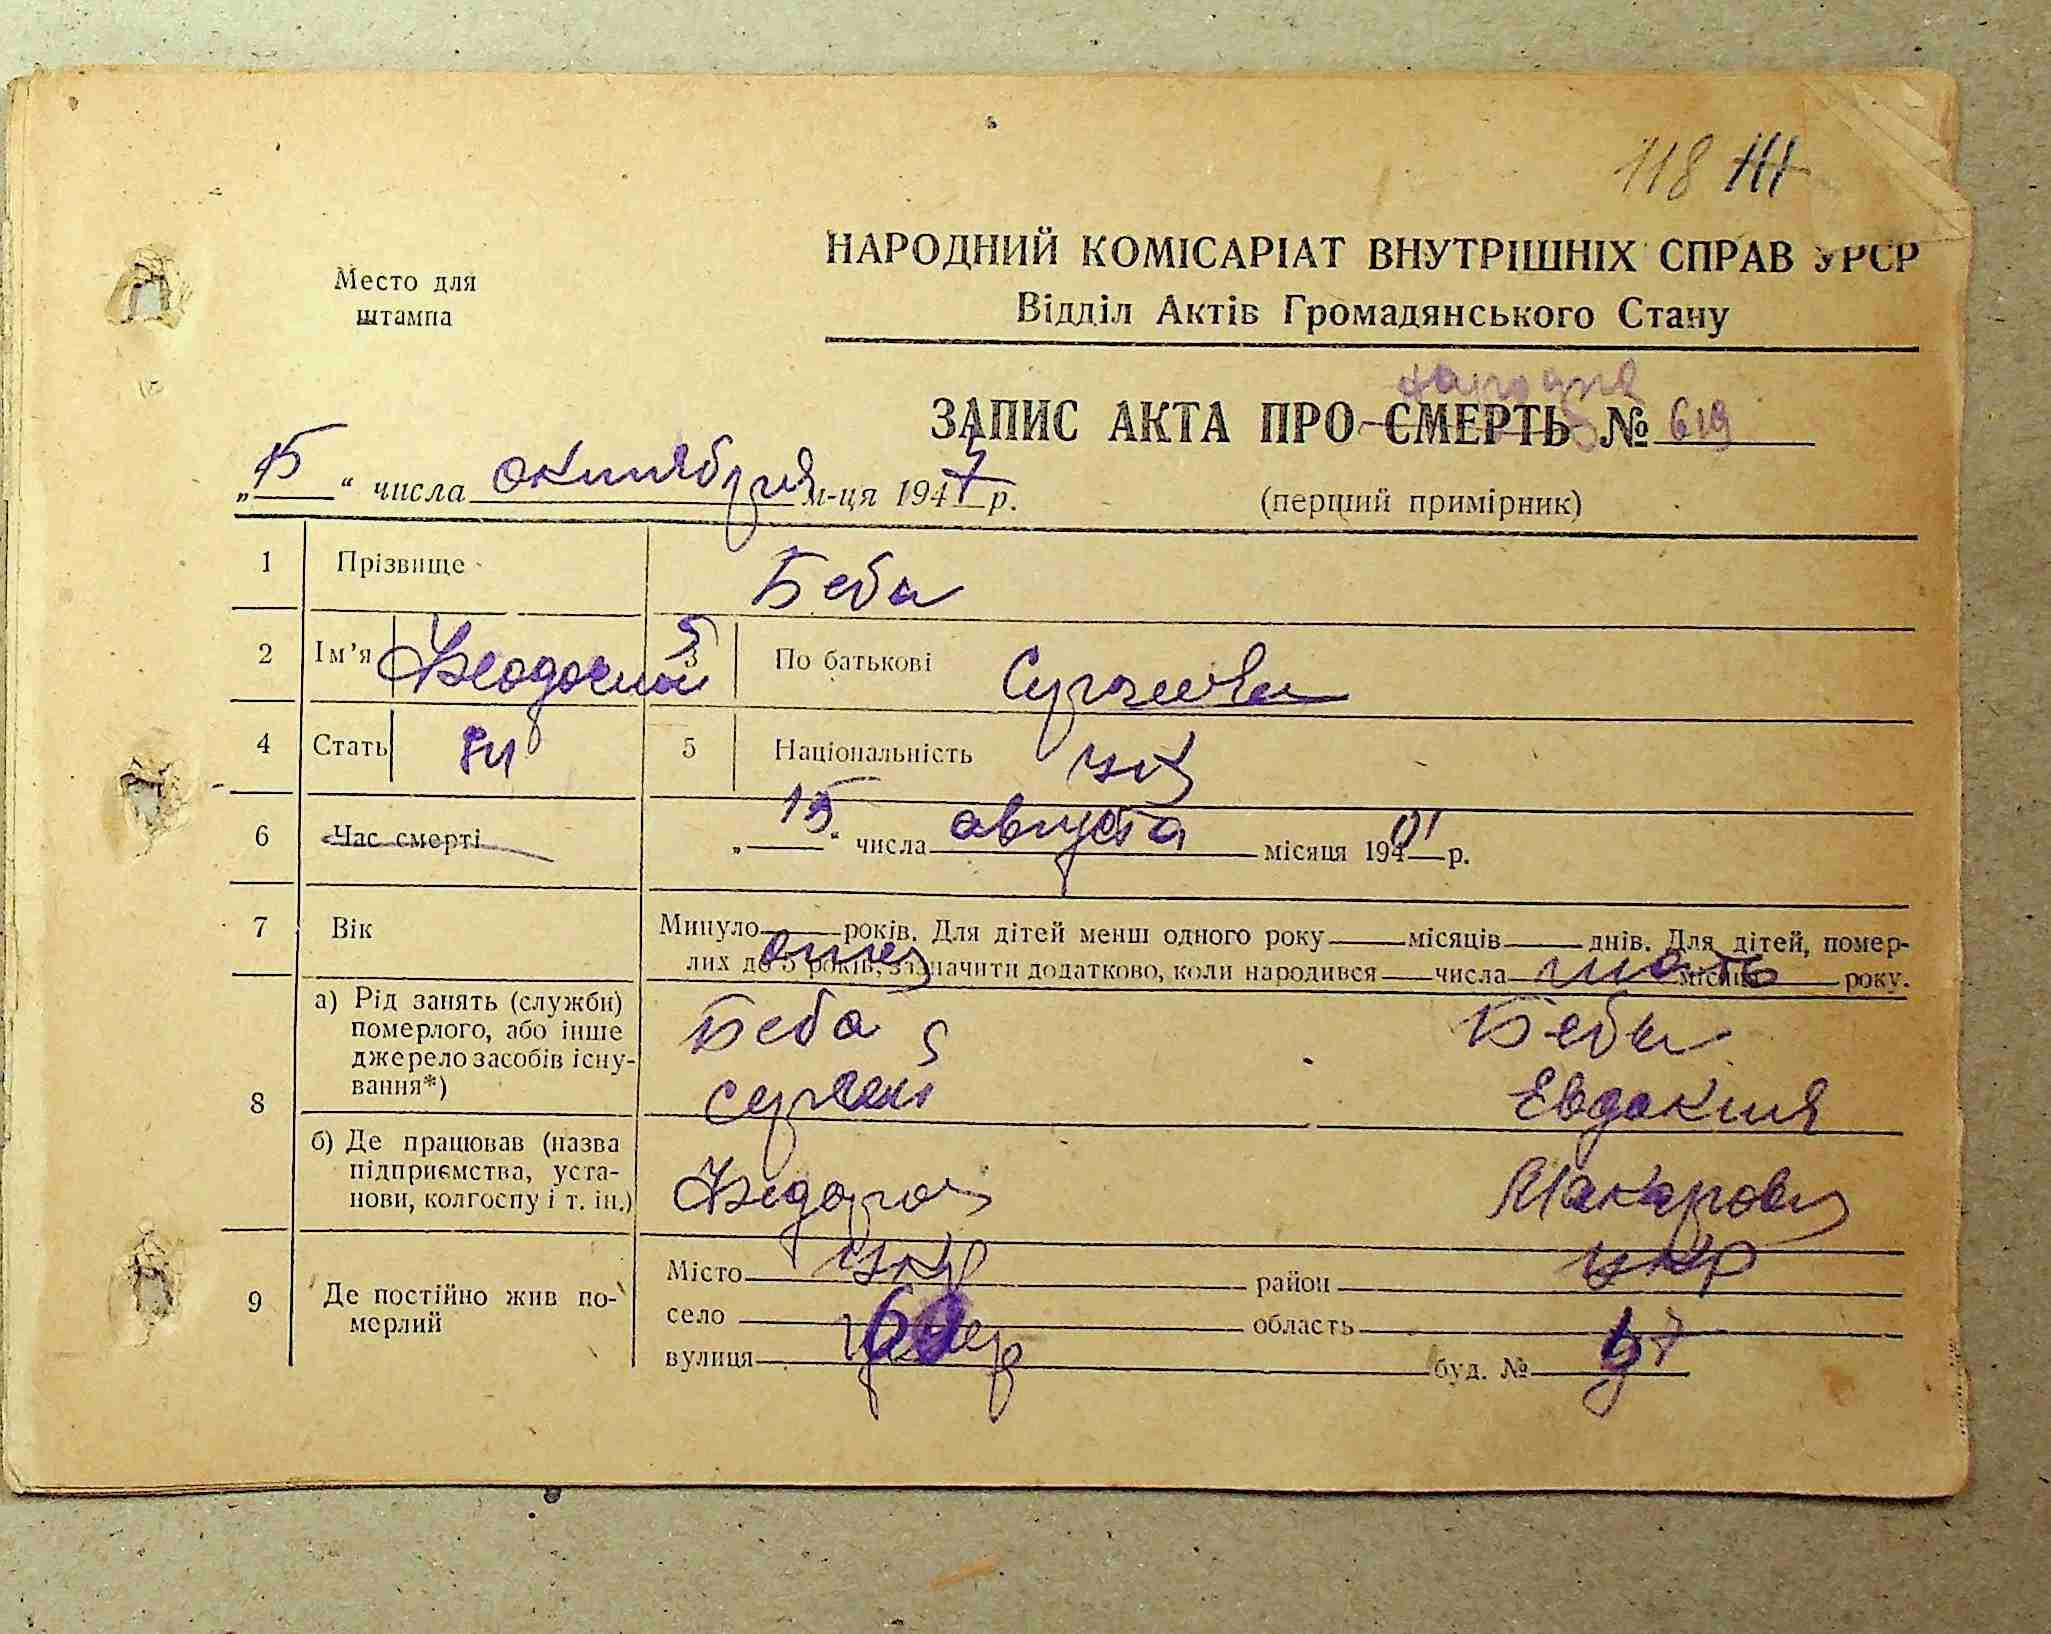 118
Место для
штампа
НАРОДНИЙ КОМІСАРІАТ ВНУТРІШНІХ СПРАВ УРСР
Відділ Актів Громадянського Стану
ЗАПИС АКТА ПРО СМЕРТЬ № 619
„15“ числа октября м-ця 1947 р.
(перший примірник)
1 Прізвище Беба
2 Ім'я Феодосий 3 По батькові Сергеевич
4 Стать 5 Національність укр
6 Час смерті „15“ числа августа місяця 1901 р.
7 Вік Минуло років. Для дітей менш одного року місяців днів. Для дітей, помер-
лих до 5 років, зазначити додатково, коли народився числа місяць року.
отец мать
8 а) Рід занять (служби)
померлого, або інше
джерело засобів існу-
вання*)
Беба Беба
Сергей Евдокия
б) Де працював (назва
підприємства, уста-
нови, колгоспу і т. ін.)
Федоров Макаровн
9 Де постійно жив по-
мерлий
Місто укр район укр
село область
вулиця буд. №